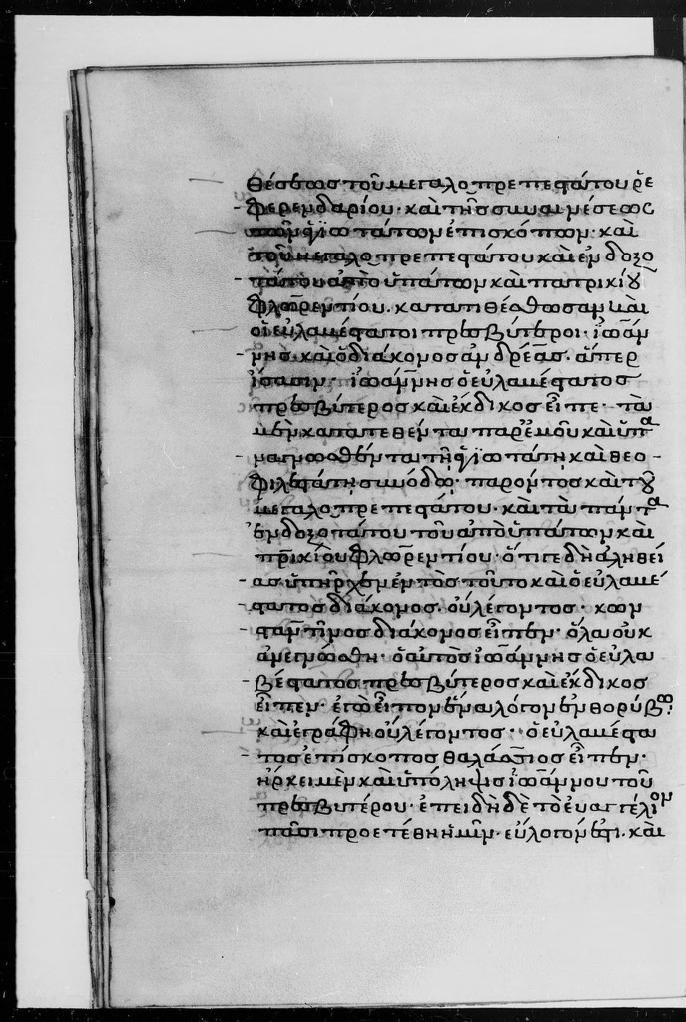 θέσεως τοῦ μεγαλοπρεπεστάτου ῥε
φερενδαρίου· καὶ τῆς συναινέσεως
τῶν ἁγιωτάτων ἐπισκόπων· καὶ
τοῦ μεγαλοπρεπεστάτου καὶ ἐνδοξο
τάτου ἀπὸ ὑπάτων καὶ πατρικίου
φλωρεντίου. καταπιθέσθωσαν καὶ
οἱ εὐλαβέστατοι πρεσβύτεροι· ἰωάν
νης· καὶ ὁ διάκονος ἀνδρέας. ἅπερ
ἴσασιν· ἰωάννης ὁ εὐλαβέστατος
πρεσβύτερος καὶ ἔκδικος εἶπε· τὰ
μὲν κατατεθέντα παρ' ἐμοῦ καὶ ὑπα
ναγνωσθέντα τῇ ἁγιωτάτῃ καὶ θεο
φιλεστάτῃ συνόδῳ· παρόντος καὶ τοῦ
μεγαλοπρεπεστάτου. καὶ τὰ πάντα
ἐνδοξοτάτου τοῦ ἀπὸ ὑπάτων καὶ
πρικίου φλωρεντίου· ὅτιπερ δὴ ἀληθεί
ας ὑπῆρχεν ἐντὸς τοῦτο καὶ ὁ εὐλαβέ
στατος διάκονος. οὐ λέγοντος· κων
σταντῖνος διάκονος εἶπεν· ὅλα οὐκ
ἀνεγνώσθη· ὁ αὐτὸς ἰωάννης ὁ εὐλα
βέστατος πρεσβύτερος καὶ ἔκδικος
εἶπεν· ἐγὼ εἶπον ἓν αὐλόγον ἐν θορύβω·
καὶ ἐγράφη οὐ λέγοντος· ὁ εὐλαβέστα
τος ἐπίσκοπος θαλάσσιος εἶπεν·
ἤρκει μὲν καὶ ὑπόληψις ἰωάννου τοῦ
πρεσβυτέρου· ἐπειδὴ δὲ τὸ εὐαγγέλιον
πᾶσι προετέθη ἡμῖν· εὔλογόν ἐστι. καὶ